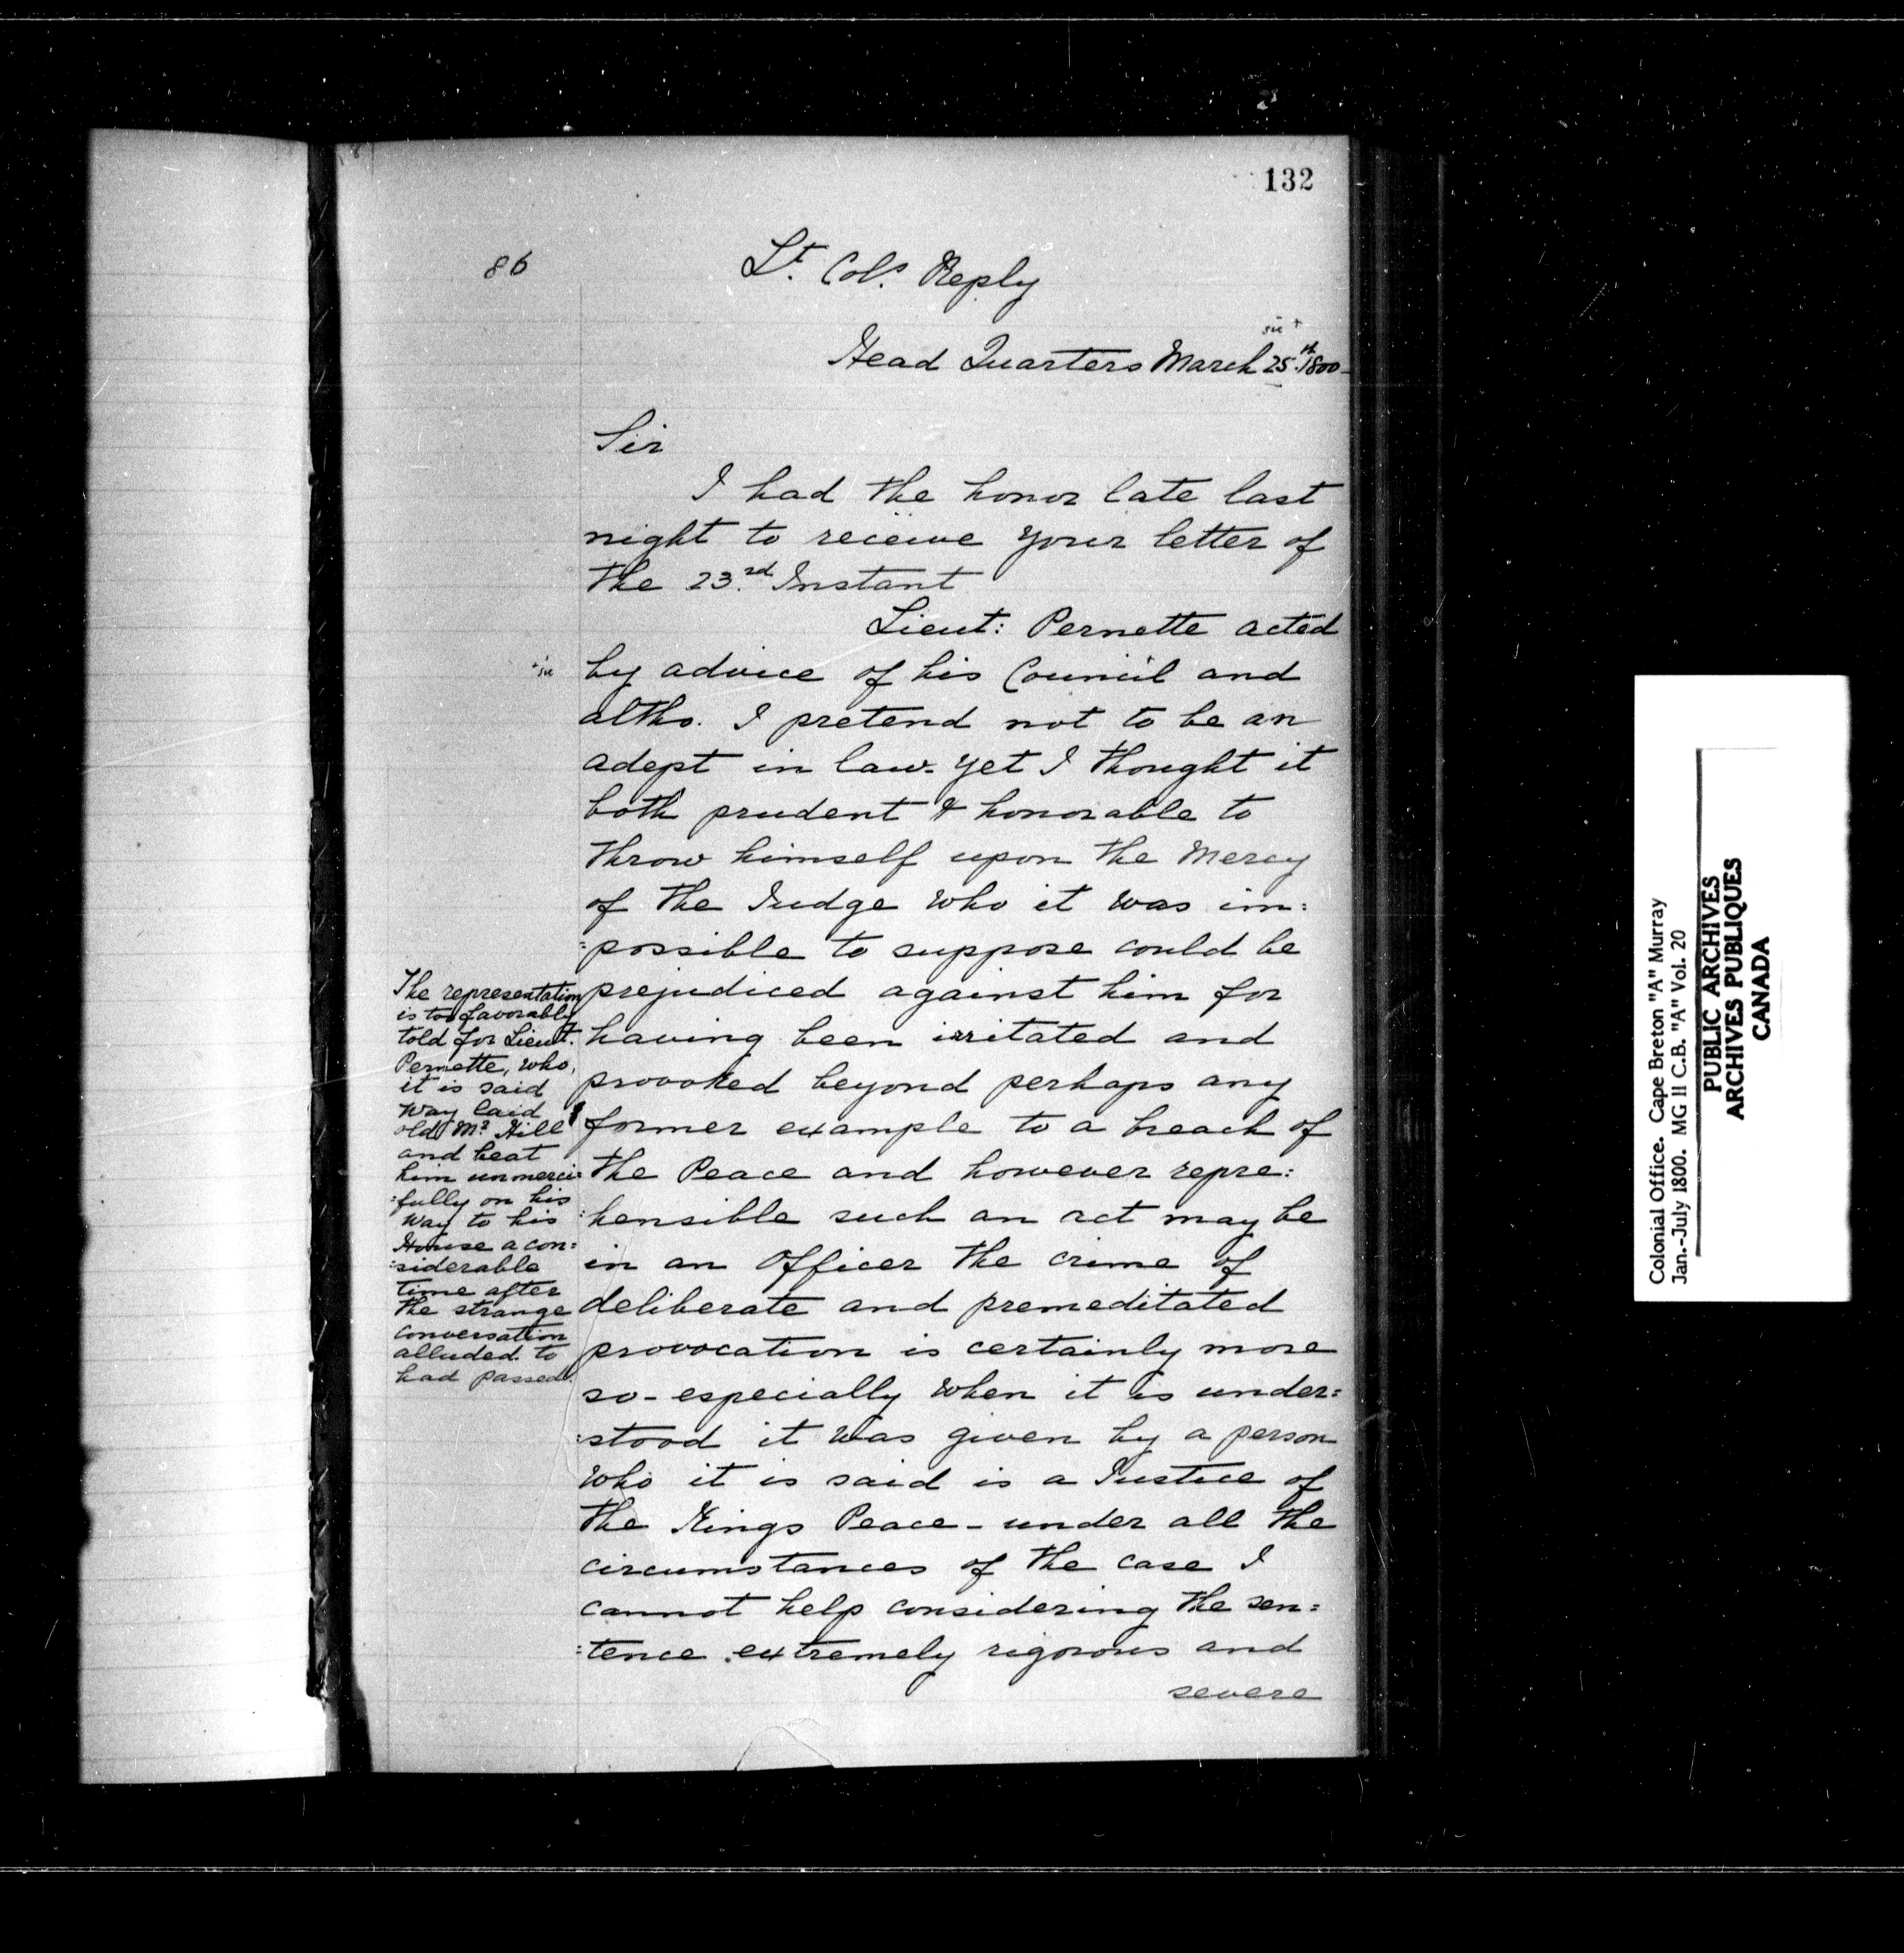 132
86
Lt. Cols Reply
sic +
Head Quarters March 25th 1800-
Sir
I had the honor late last
night to receive your letter of
the 23rd Instant
Lieut: Pernette acted
+ sic
by advice of his Council and
altho. I pretend not to be an
adept in law. yet I thought it
both prudent & honorable to
throw himself upon the Mercy
of the Judge who it was im:
:possible to suppose could be
prejudiced against him for
having been irritated and
provoked beyond perhaps any
former example to a breach of
the Peace and however repre:
:hensible such an act may be
in an Officer the crime of
deliberate and premeditated
provocation is certainly more
so-especially when it is under:
:stood it was given by a person
who it is said is a Justice of
the Kings Peace - under all the
circumstances of the case I
cannot help considering the sen:
:tence extremely rigorous and
severe
The representation
is too favorably
told for Lieut.
Pernette, who,
it is said
way laid
old Mr Hill
and beat
him unmerci:
:fully on his
way to his
House a con:
:siderable
time after
the strange
conversation
alluded to
had passed.
Colonial Office. Cape Breton "A" Murray
Jan.-July 1800. MG 11 C.B. "A" Vol. 20
PUBLIC ARCHIVES
ARCHIVES PUBLIQUES
CANADA